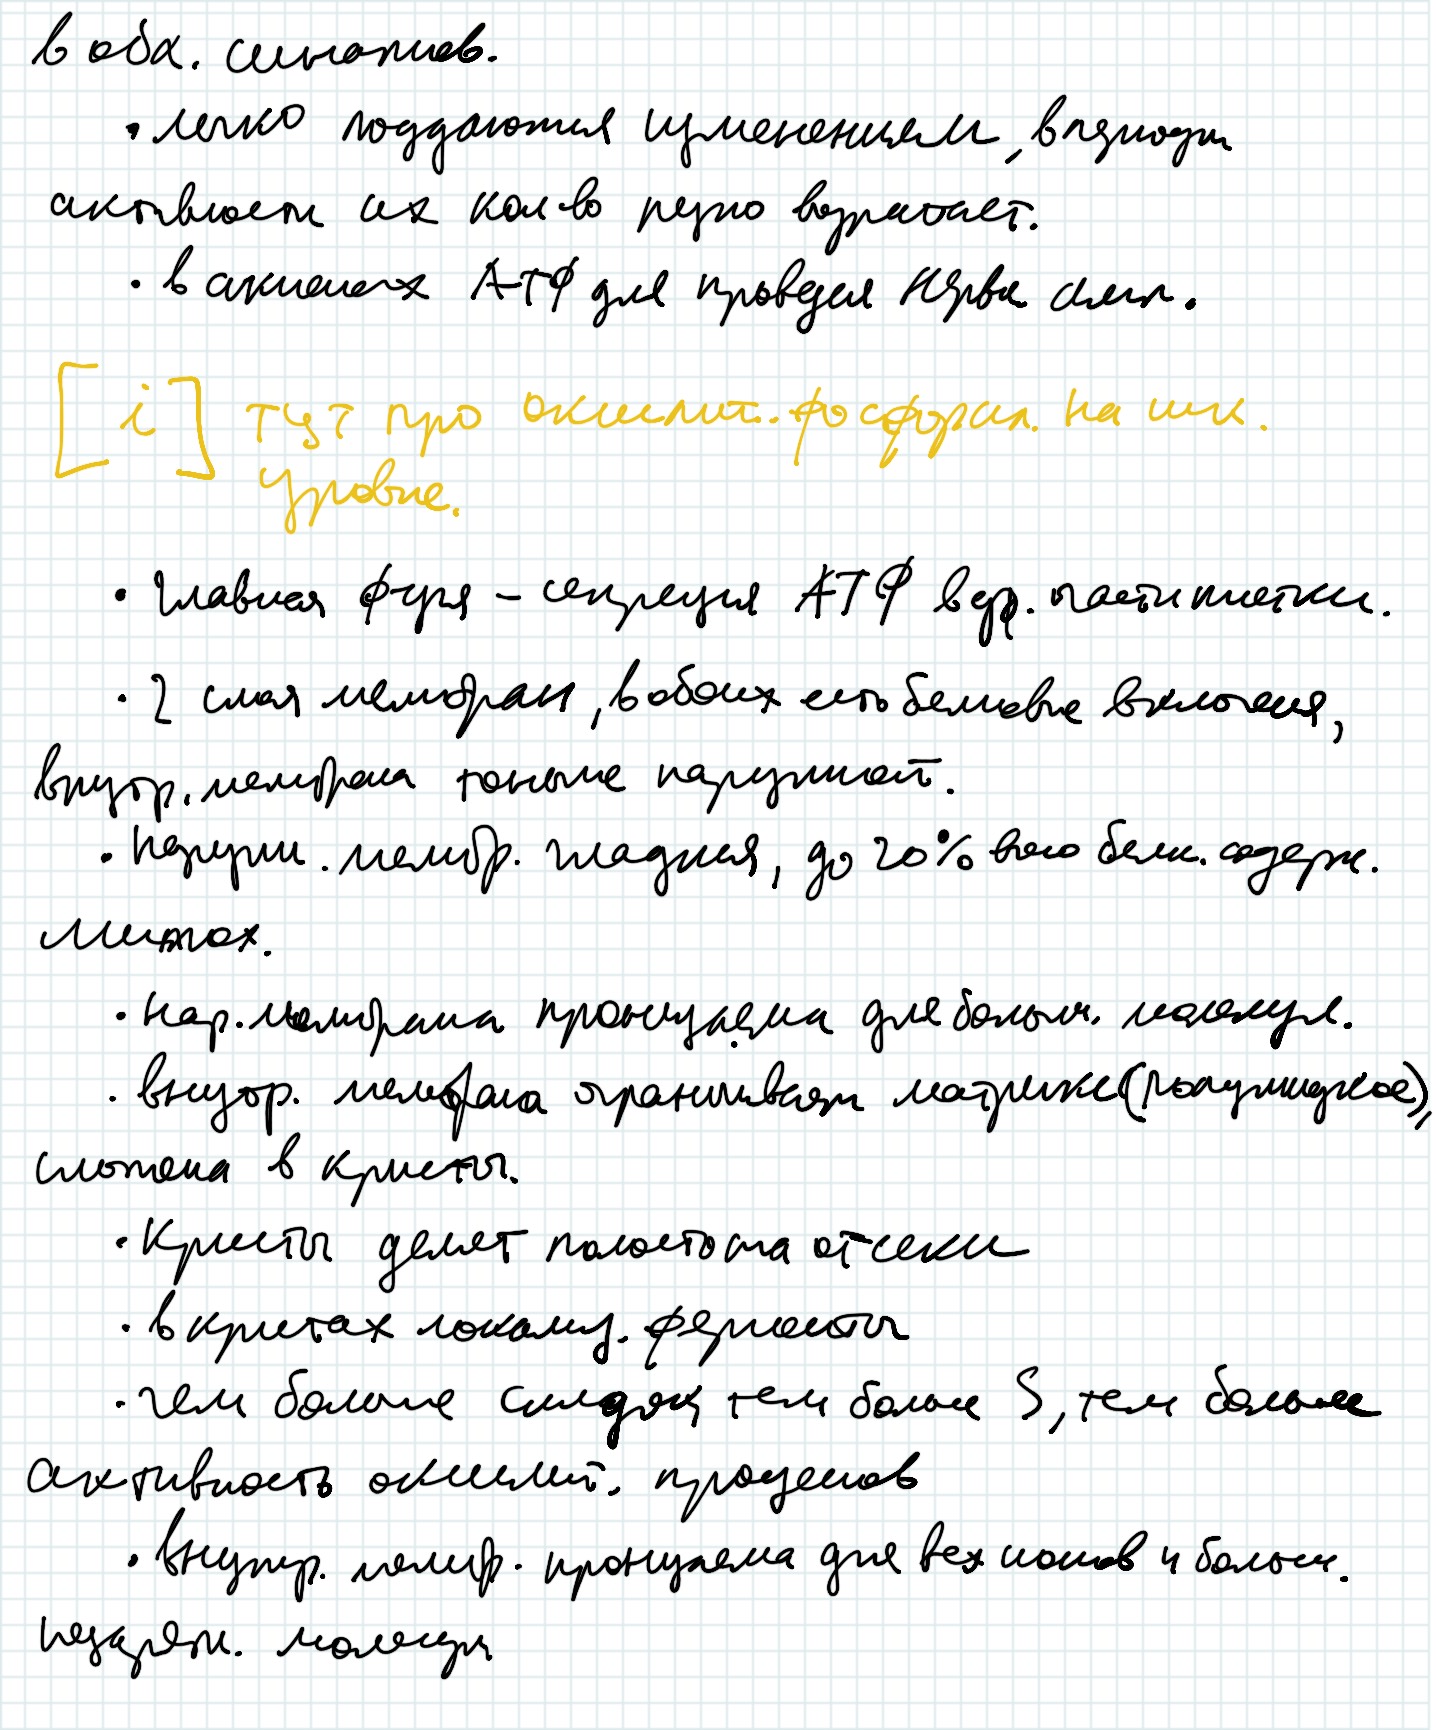 в обл. синапсов.
• легко поддаются изменениям, в периоды
активности их кол-во резко возрастает.
• в аксонах АТФ для провед-я нервн. имп.
[i] тут про окислит. фосфорил. на шк.
уровне.
• главная ф-ция – секреция АТФ в др. части клетки.
• 2 слоя мембран, в обоих есть белковые включения,
внутр. мембрана тоньше наружной.
• наружн. мембр. гладкая, до 20% всего белк. содерж.
митох.
• нар. мембрана проницаема для больш. молекул.
• внутр. мембрана ограничивает матрикс (полужидкое),
сложена в кристы.
• Кристы делят полость на отсеки
• в кристах локализ. ферменты
• чем больше складок, тем больше S, тем больше
активность окислит. процессов
• внутр. мембр. проницаема для всех ионов и больш.
незаряж. молекул